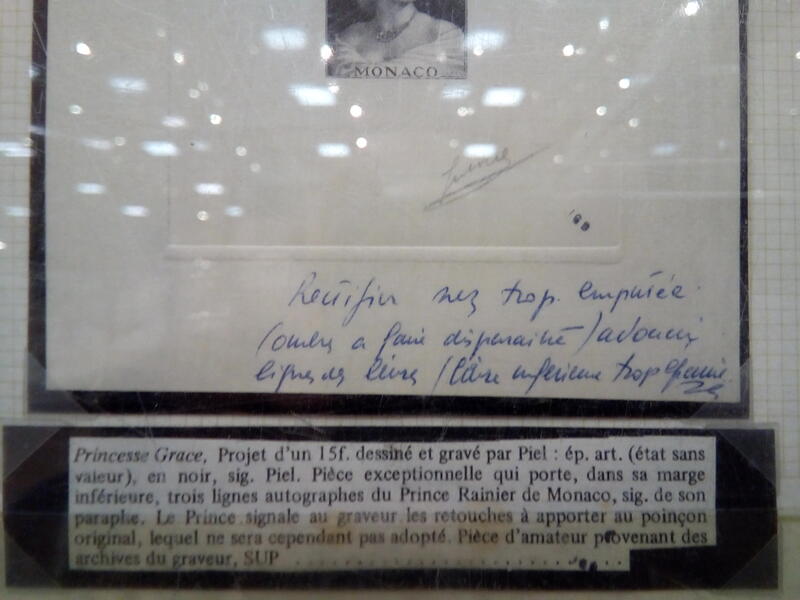 MONACO
Rectifier nez trop empatée
(ombre a faire disparaitre) adoucir
lignes des lèvres (lèvre inferieure trop épaisse
Princesse Grace, Projet d'un 15f. dessiné et gravé par Piel : ép. art. (état sans
valeur), en noir, sig. Piel. Pièce exceptionnelle qui porte, dans sa marge
inférieure, trois lignes autographes du Prince Rainier de Monaco, sig. de son
paraphe. Le Prince signale au graveur les retouches à apporter au poinçon
original, lequel ne sera cependant pas adopté. Pièce d'amateur provenant des
archives du graveur, SUP ..............................